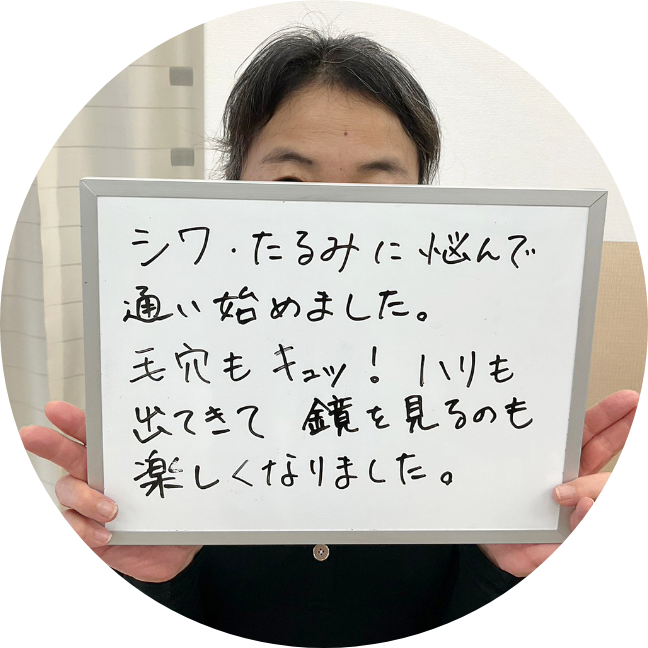 シワ・たるみに悩んで
通い始めました。
毛穴もキュッ！ハリも
出てきて 鏡を見るのも
楽しくなりました。